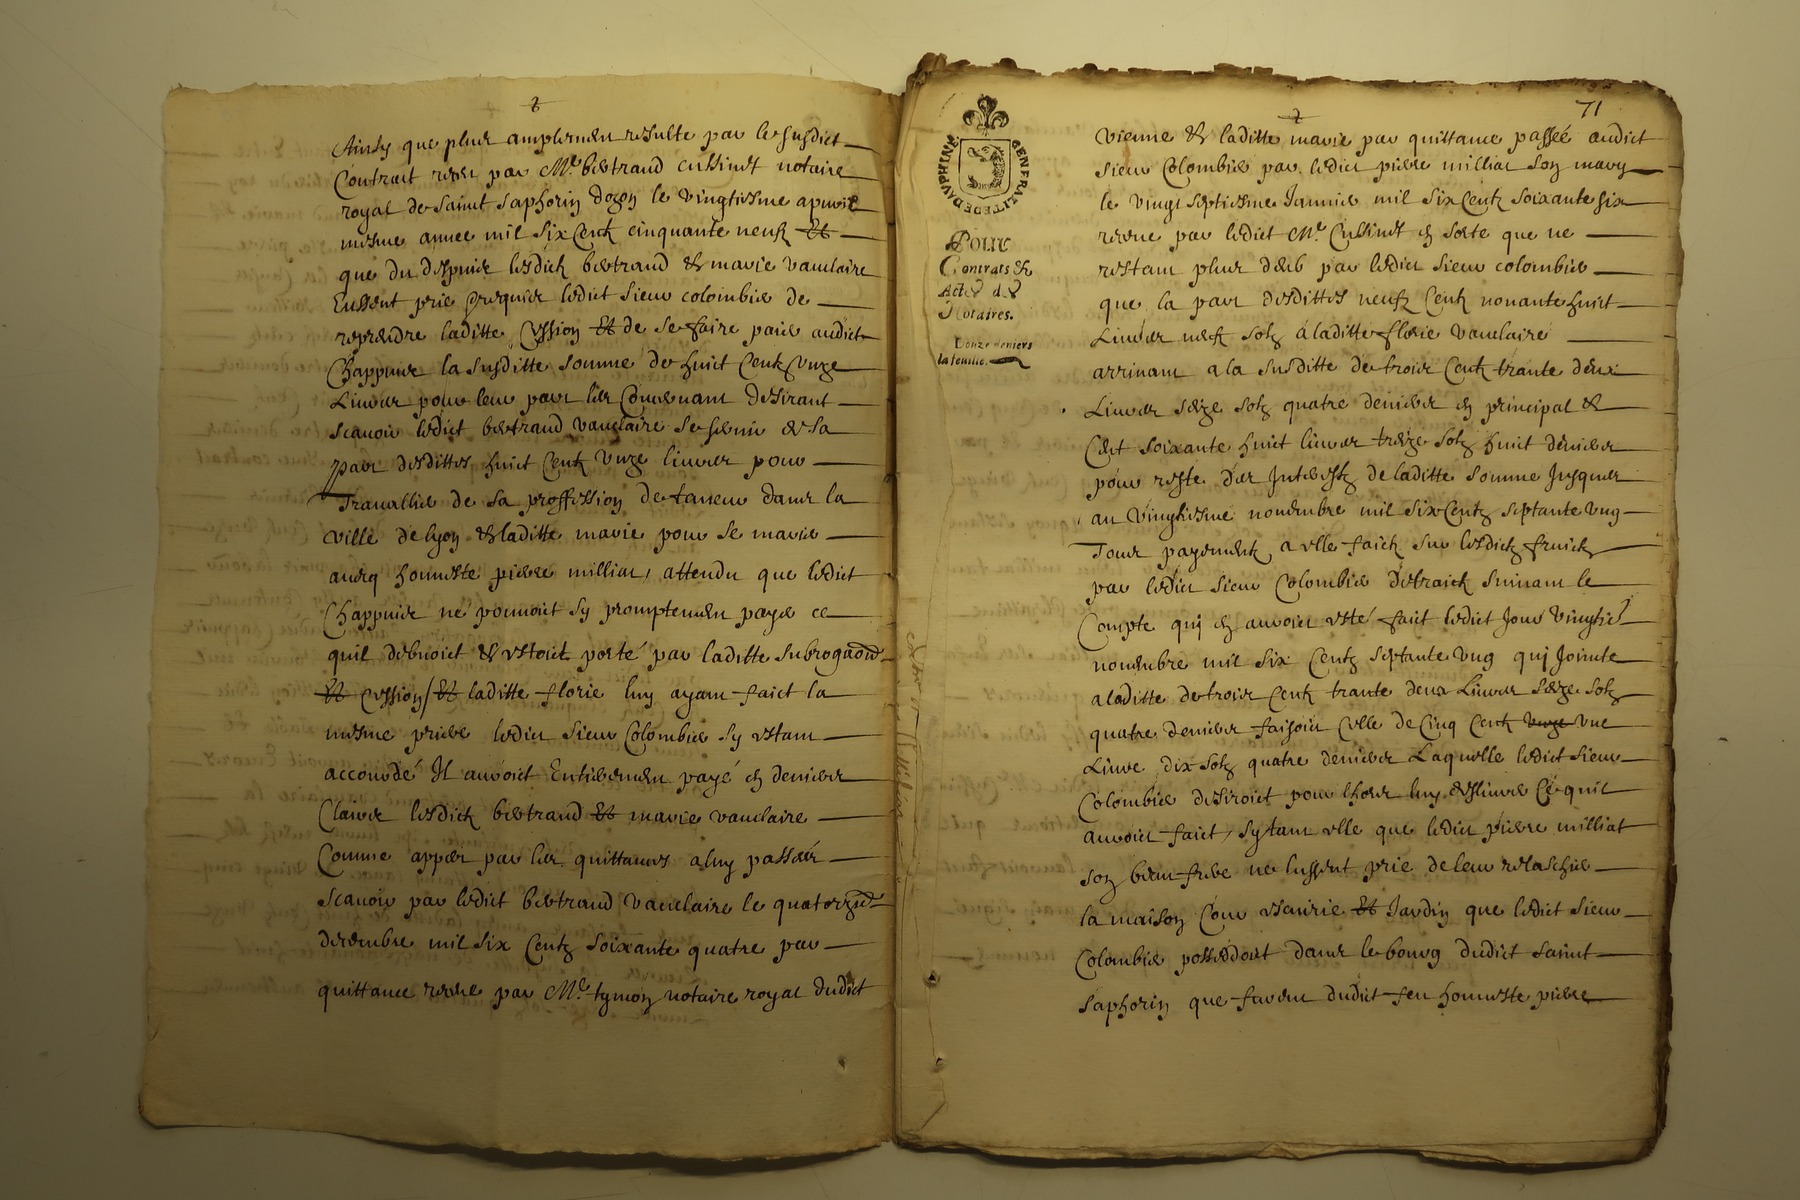 2
Ainsy que plus amplemen resulte par le susdict
Contract receu par Me. bertrand cussinet notaire
royal de saint saphorin dozon le vingtiesme
mesme annee mil six Centz cinquante neufz Et
que du despuis lesdictz bertrand & marie vauclaire
Eussent prie requis ledict sieur colombier de
reprendre laditte Cession Et de se faire paier audict
Chappuis la susditte somme de huict Centz unze
Livres pour leur part les Concernant desirant
scavoir ledict bertrand vauclaire se servir de sa
part desdittes huict Centz unze livres pour
Travallier de sa proffession de tanneur dans la
ville de lyon & laditte marie pour se marier
avecq honneste pierre milliat, attendu que ledict
Chappuis ne pouvoit sy promptemen payer ce
quil debvoict & estoict porté par laditte subrogaon
Et cession / Et laditte florie luy ayant faict la
mesme priere ledict sieur Colombier sy estant
accourdé Il auroict Entieremen payé en deniers
Claires lesdictz bertrand Et marie vauclaire
Comme apper par les quittances a luy passées
scavoir par ledict bertrand vauclaire le quatorziesme
decembre mil six Centz soixante quatre par
quittance receue par Me. tymon notaire royal dudict
2
71
DAUPHINE GENERALITE DE
Pour
Contrats &
Actes des
Notaires.
Douze deniers
la feuille.
vienne & laditte marie par quittance passée audict
sieur Colombier par ledict pierre milliat son mary
le vingt septiesme Janvier mil six Centz soixante six
receue par ledict Me. Cussinet en sorte que ne
restant plus deub par ledict sieur colombier
que la part desdittes neufz Centz nonante huict
Livres neufz solz à laditte florie vauclaire
arrivant a la susditte de trois Centz trante deux
Livres seize solz quatre deniers en principal &
Cent soixante huict livres treize solz huict deniers
pour reste des Interestz de laditte somme Jusques
au vingtiesme novembre mil six Centz septante ung
Tous payementz a elle faictz sur lesdictz fruictz
par ledict sieur Colombier detraictz suivant le
Compte qui en auroict esté faict ledict Jour vingtie
novembre mil six Centz septante ung qui Jointe
a laditte de trois Centz trante deux Livres seize solz
quatre deniers faisoict celle de Cinq Centz unze une
Livre dix solz quatre deniers Laquelle ledict sieur
Colombier desiroict pour lhors luy deslivrer Ce quil
auroict faict, sy tant elle que ledict pierre milliat
son beau frere ne lussent prie de leur relascher
la maison Cour escurie Et Jardin que ledict sieur
Colombier possedoict dans le bourg dudict saint
saphorin que furent dudict feu honneste pierre